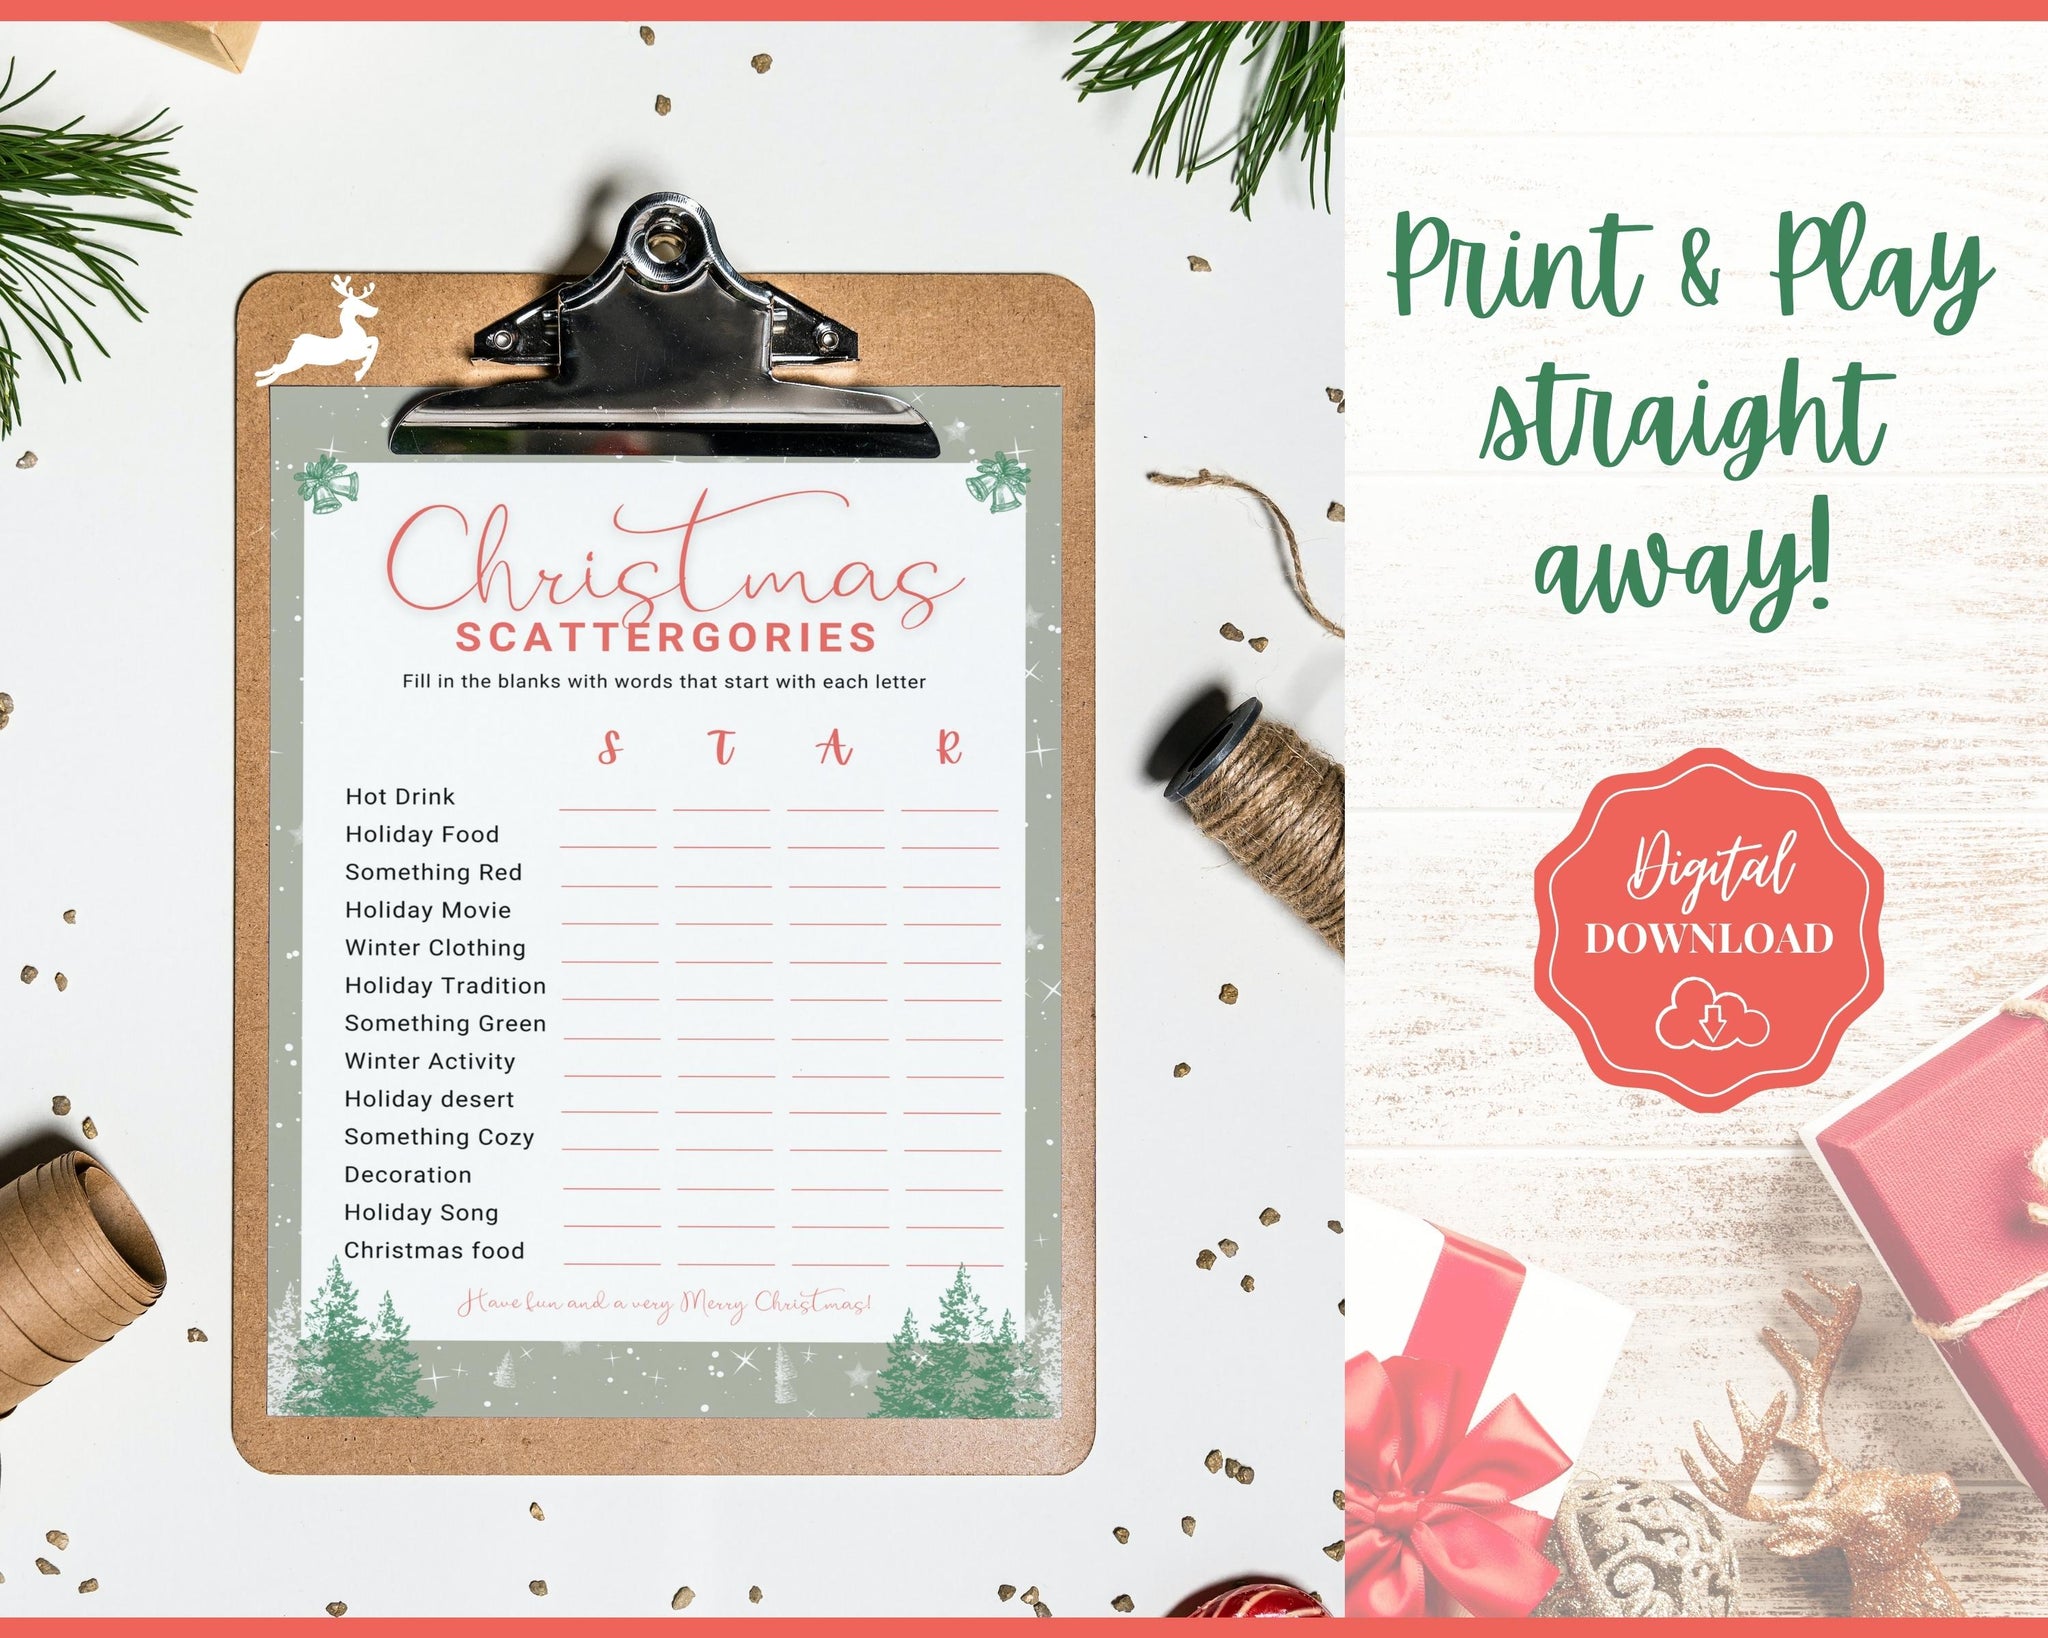 Christmas
SCATTERGORIES
Fill in the blanks with words that start with each letter
S T A R
Hot Drink
Holiday Food
Something Red
Holiday Movie
Winter Clothing
Holiday Tradition
Something Green
Winter Activity
Holiday desert
Something Cozy
Decoration
Holiday Song
Christmas food
Have fun and a very Merry Christmas!
Print & Play
straight
away!
Digital
DOWNLOAD